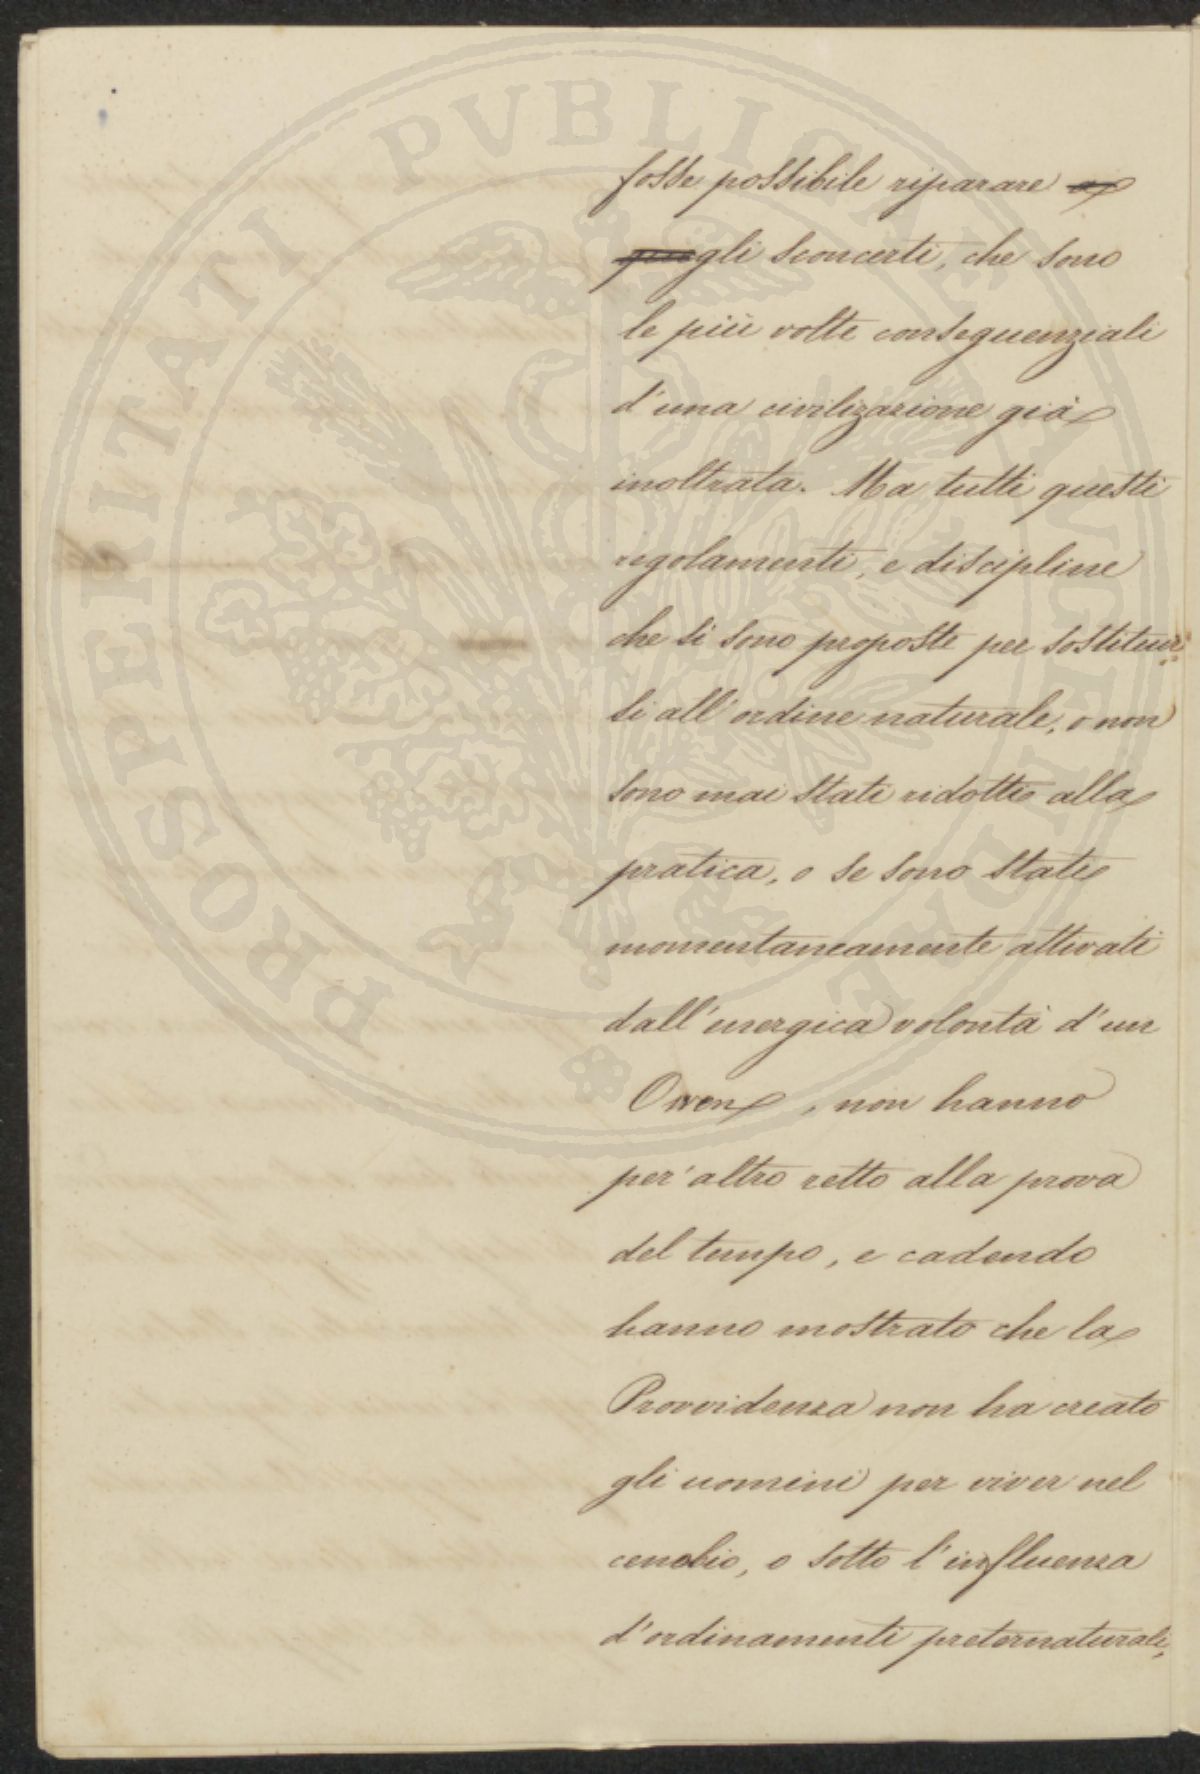 fosse possibile riparare a
quegli sconcerti, che sono
le più volte conseguenziali
d'una civilizazione già
inoltrata. Ma tutti questi
regolamenti, e discipline
che si sono proposte per sostituir
si all'ordine naturale, o non
sono mai stati ridotti alla
pratica, o se sono stati
momentaneamente attivati
dall'energica volontà d'un
Owen, non hanno
per altro retto alla prova
del tempo, e cadendo
hanno mostrato che la
Provvidenza non ha creato
gli uomini per viver nel
cenobio, o sotto l'influenza
d'ordinamenti preternaturali,
PROSPERITATI PVBLICAE AVGENDAE